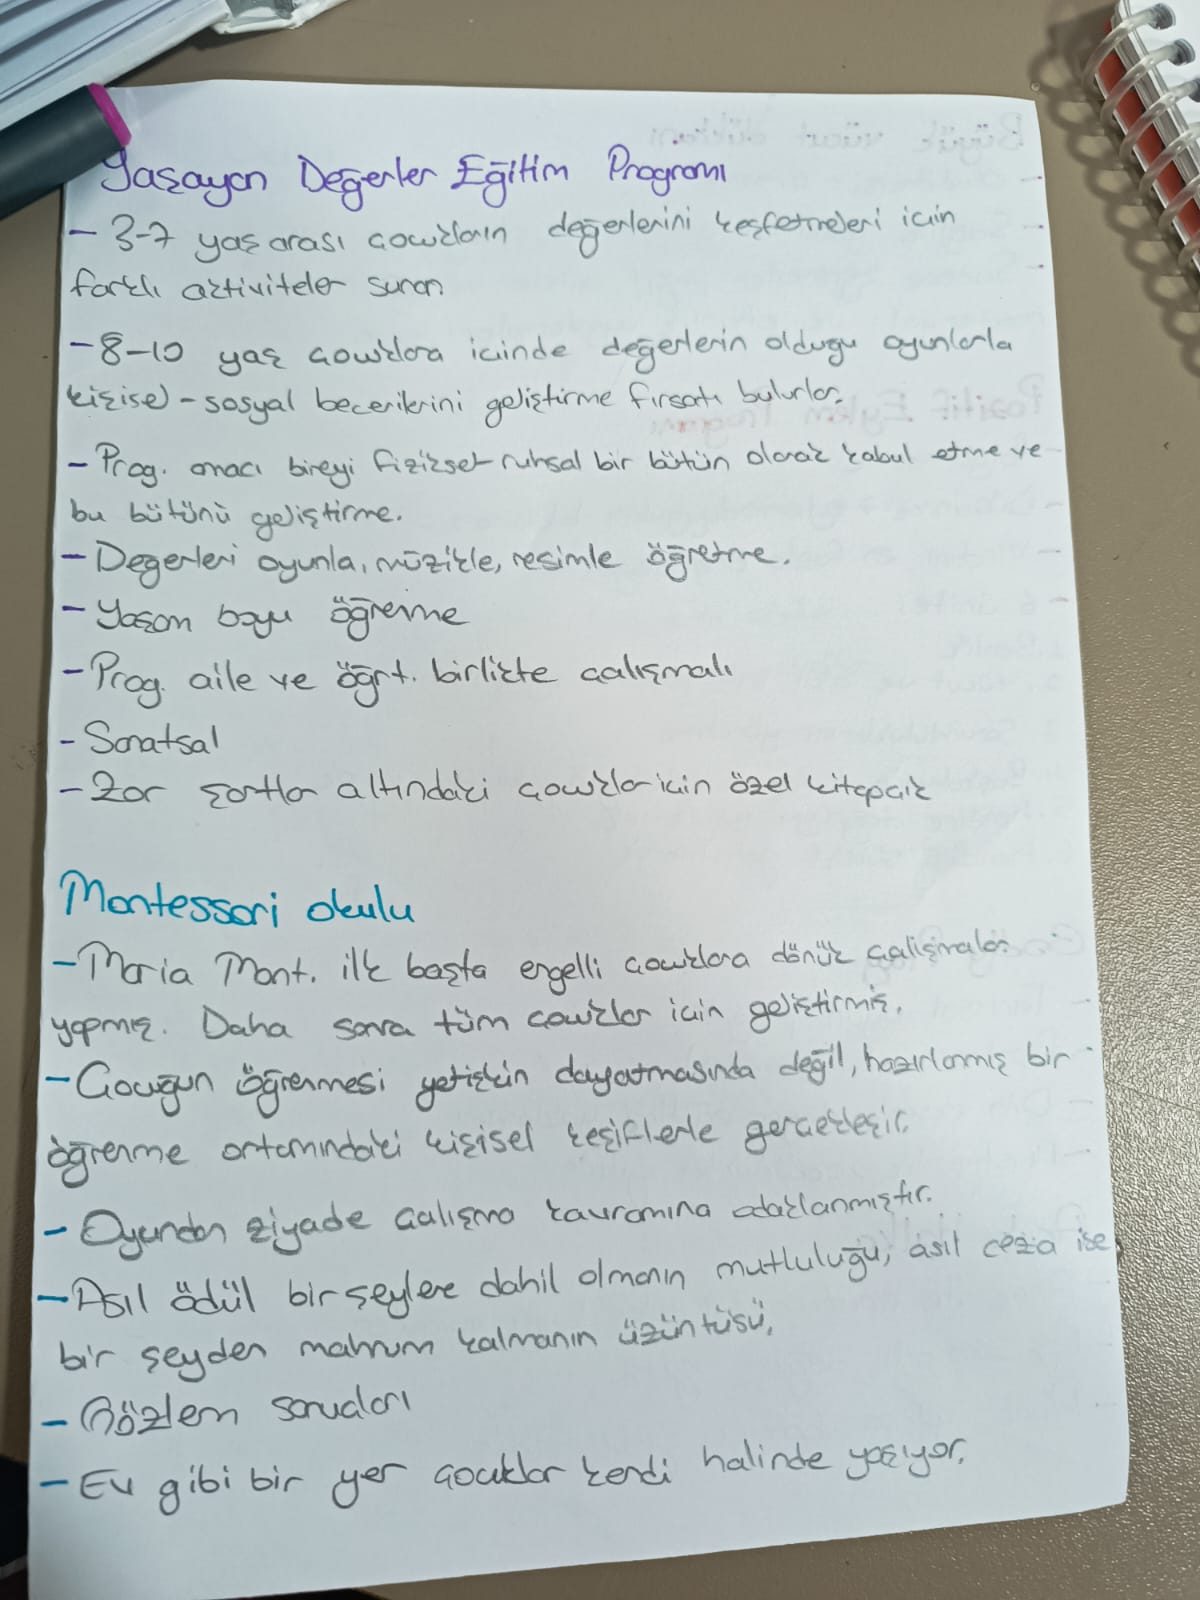 Yaşayan Değerler Eğitim Programı
- 3-7 yaş arası çocukların değerlerini keşfetmeleri için
farklı aktiviteler sunan
- 8-10 yaş çocuklara içinde değerlerin olduğu oyunlarla
kişisel - sosyal becerilerini geliştirme fırsatı bulurlar.
- Prog. amacı bireyi fiziksel-ruhsal bir bütün olarak kabul etme ve
bu bütünü geliştirme.
- Değerleri oyunla, müzikle, resimle öğretme.
- Yaşam boyu öğrenme
- Prog. aile ve öğrt. birlikte çalışmalı
- Sanatsal
- Zor şartlar altındaki çocuklar için özel kitapçık
Montessori okulu
- Maria Mont. ilk başta engelli çocuklara dönük çalışmalar
yapmış. Daha sonra tüm çocuklar için geliştirmiş.
- Çocuğun öğrenmesi yetişkin dayatmasında değil, hazırlanmış bir
öğrenme ortamındaki kişisel keşiflerle gerçekleşir.
- Oyundan ziyade çalışma kavramına odaklanmıştır.
- Asıl ödül bir şeylere dahil olmanın mutluluğu, asıl ceza ise
bir şeyden mahrum kalmanın üzüntüsü.
- Gözlem soruları
- Ev gibi bir yer çocuklar kendi halinde yaşıyor.